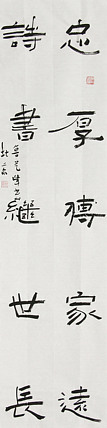 忠厚傳家遠
詩書繼世長